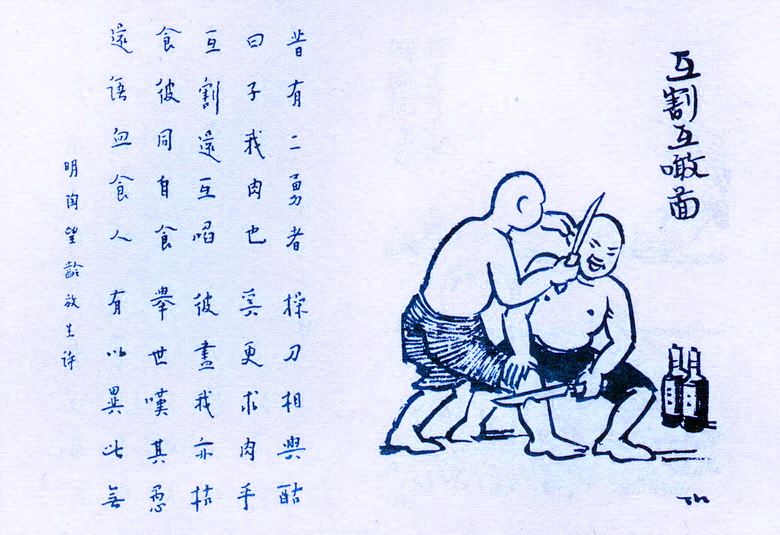 互割互噉啚
昔有二勇者 操刀相與酤
曰子我肉也 奚更求肉乎
互割還互啗 彼盡我亦枯
食彼同自食 舉世嘆其愚
還語血食人 有以異此無
明陶望齡放生詩
TK